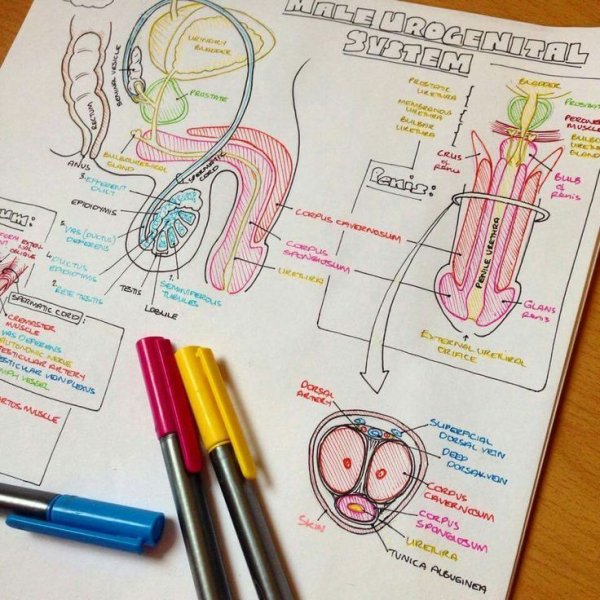 MALE UROGENITAL
SYSTEM
URINARY
BLADDER
SEMINAL VESICLE
PROSTATE
RECTUM
ANUS
BULBOURETHRAL
GLAND
SPERMATIC
CORD
3. EFFERENT
DUCT
EPIDIDYMIS
5. VAS (DUCTUS)
DEFERENS
4.
DUCTUS
EPIDIDYMIS
2. RETE TESTIS
TESTIS
LOBULE
1.
SEMINIFEROUS
TUBULES
CORPUS CAVERNOSUM
CORPUS
SPONGIOSUM
URETHRA
SPERMATIC CORD:
CREMASTER
MUSCLE
VAS DEFERENS
AUTONOMIC NERVE
TESTICULAR ARTERY
TESTICULAR VEIN PLEXUS
LYMPH VESSEL
DARTOS MUSCLE
PROSTATIC
URETHRA
MEMBRANOUS
URETHRA
BULBAR
URETHRA
BLADDER
CRUS
OF
PENIS
BULB
OF
PENIS
Penis:
PENILE URETHRA
GLANS
PENIS
EXTERNAL URETHRAL
ORIFICE
DORSAL
ARTERY
SUPERFICIAL
DORSAL VEIN
DEEP
DORSAL VEIN
CORPUS
CAVERNOSUM
CORPUS
SPONGIOSUM
URETHRA
TUNICA ALBUGINEA
SKIN